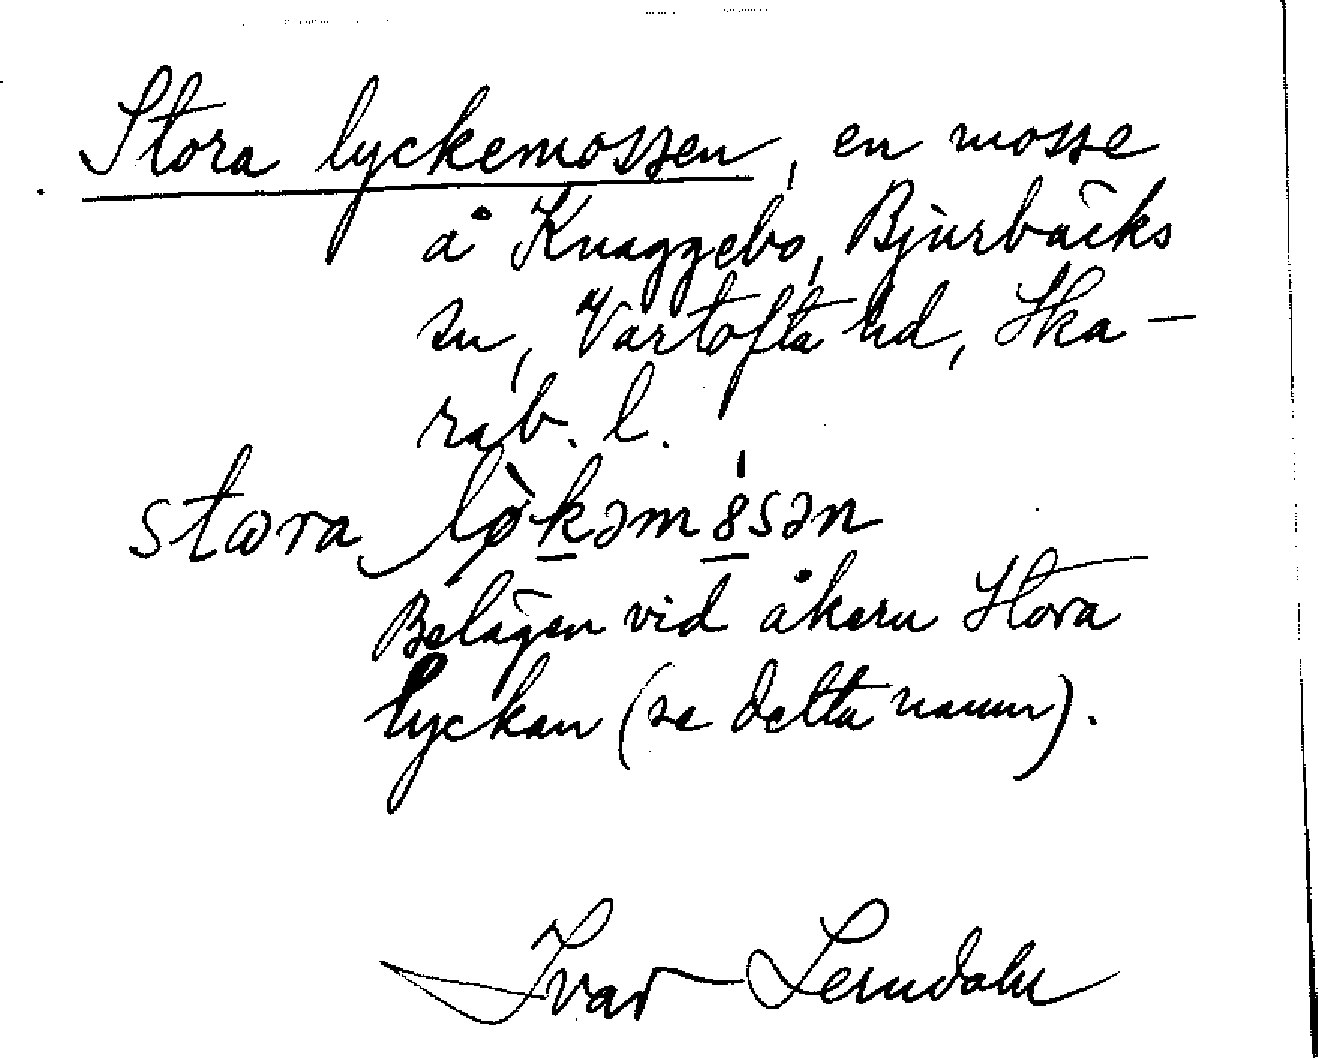 Stora lyckemossen, en mosse
å Knaggebo, Bjurbäcks
sn, Vartofta hd, Ska-
rab. l.
stωra lø̀kəm8sən
Belägen vid åkern Stora
lyckan (se detta namn).
Ivar Lerndahl